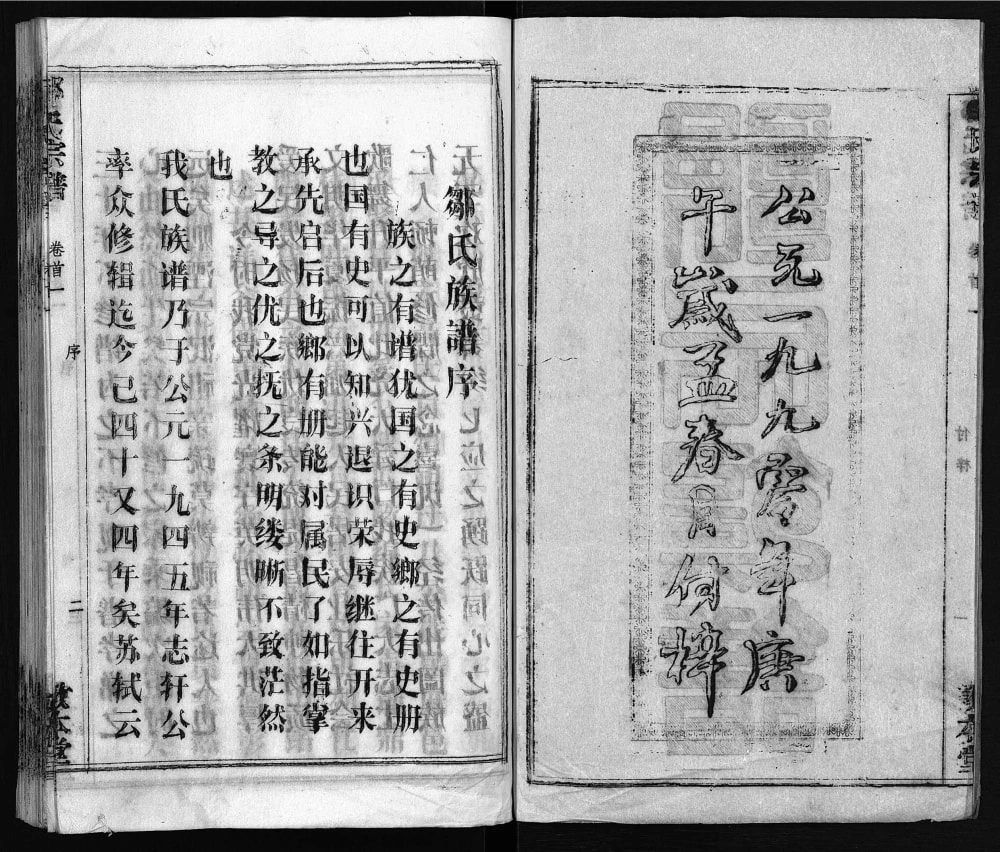 公元一九九零年庚
午歲孟春月付梓
鄒氏族譜序
族之有谱犹国之有史鄉之有史册
也国有史可以知兴退识荣辱继往开来
承先启后也鄉有册能对属民了如指掌
教之导之优之抚之条明缕晰不致茫然
也
我氏族谱乃于公元一九四五年志轩公
率众修辑迄今已四十又四年矣苏轼云
氏宗譜
卷首一
序
二
敦本堂